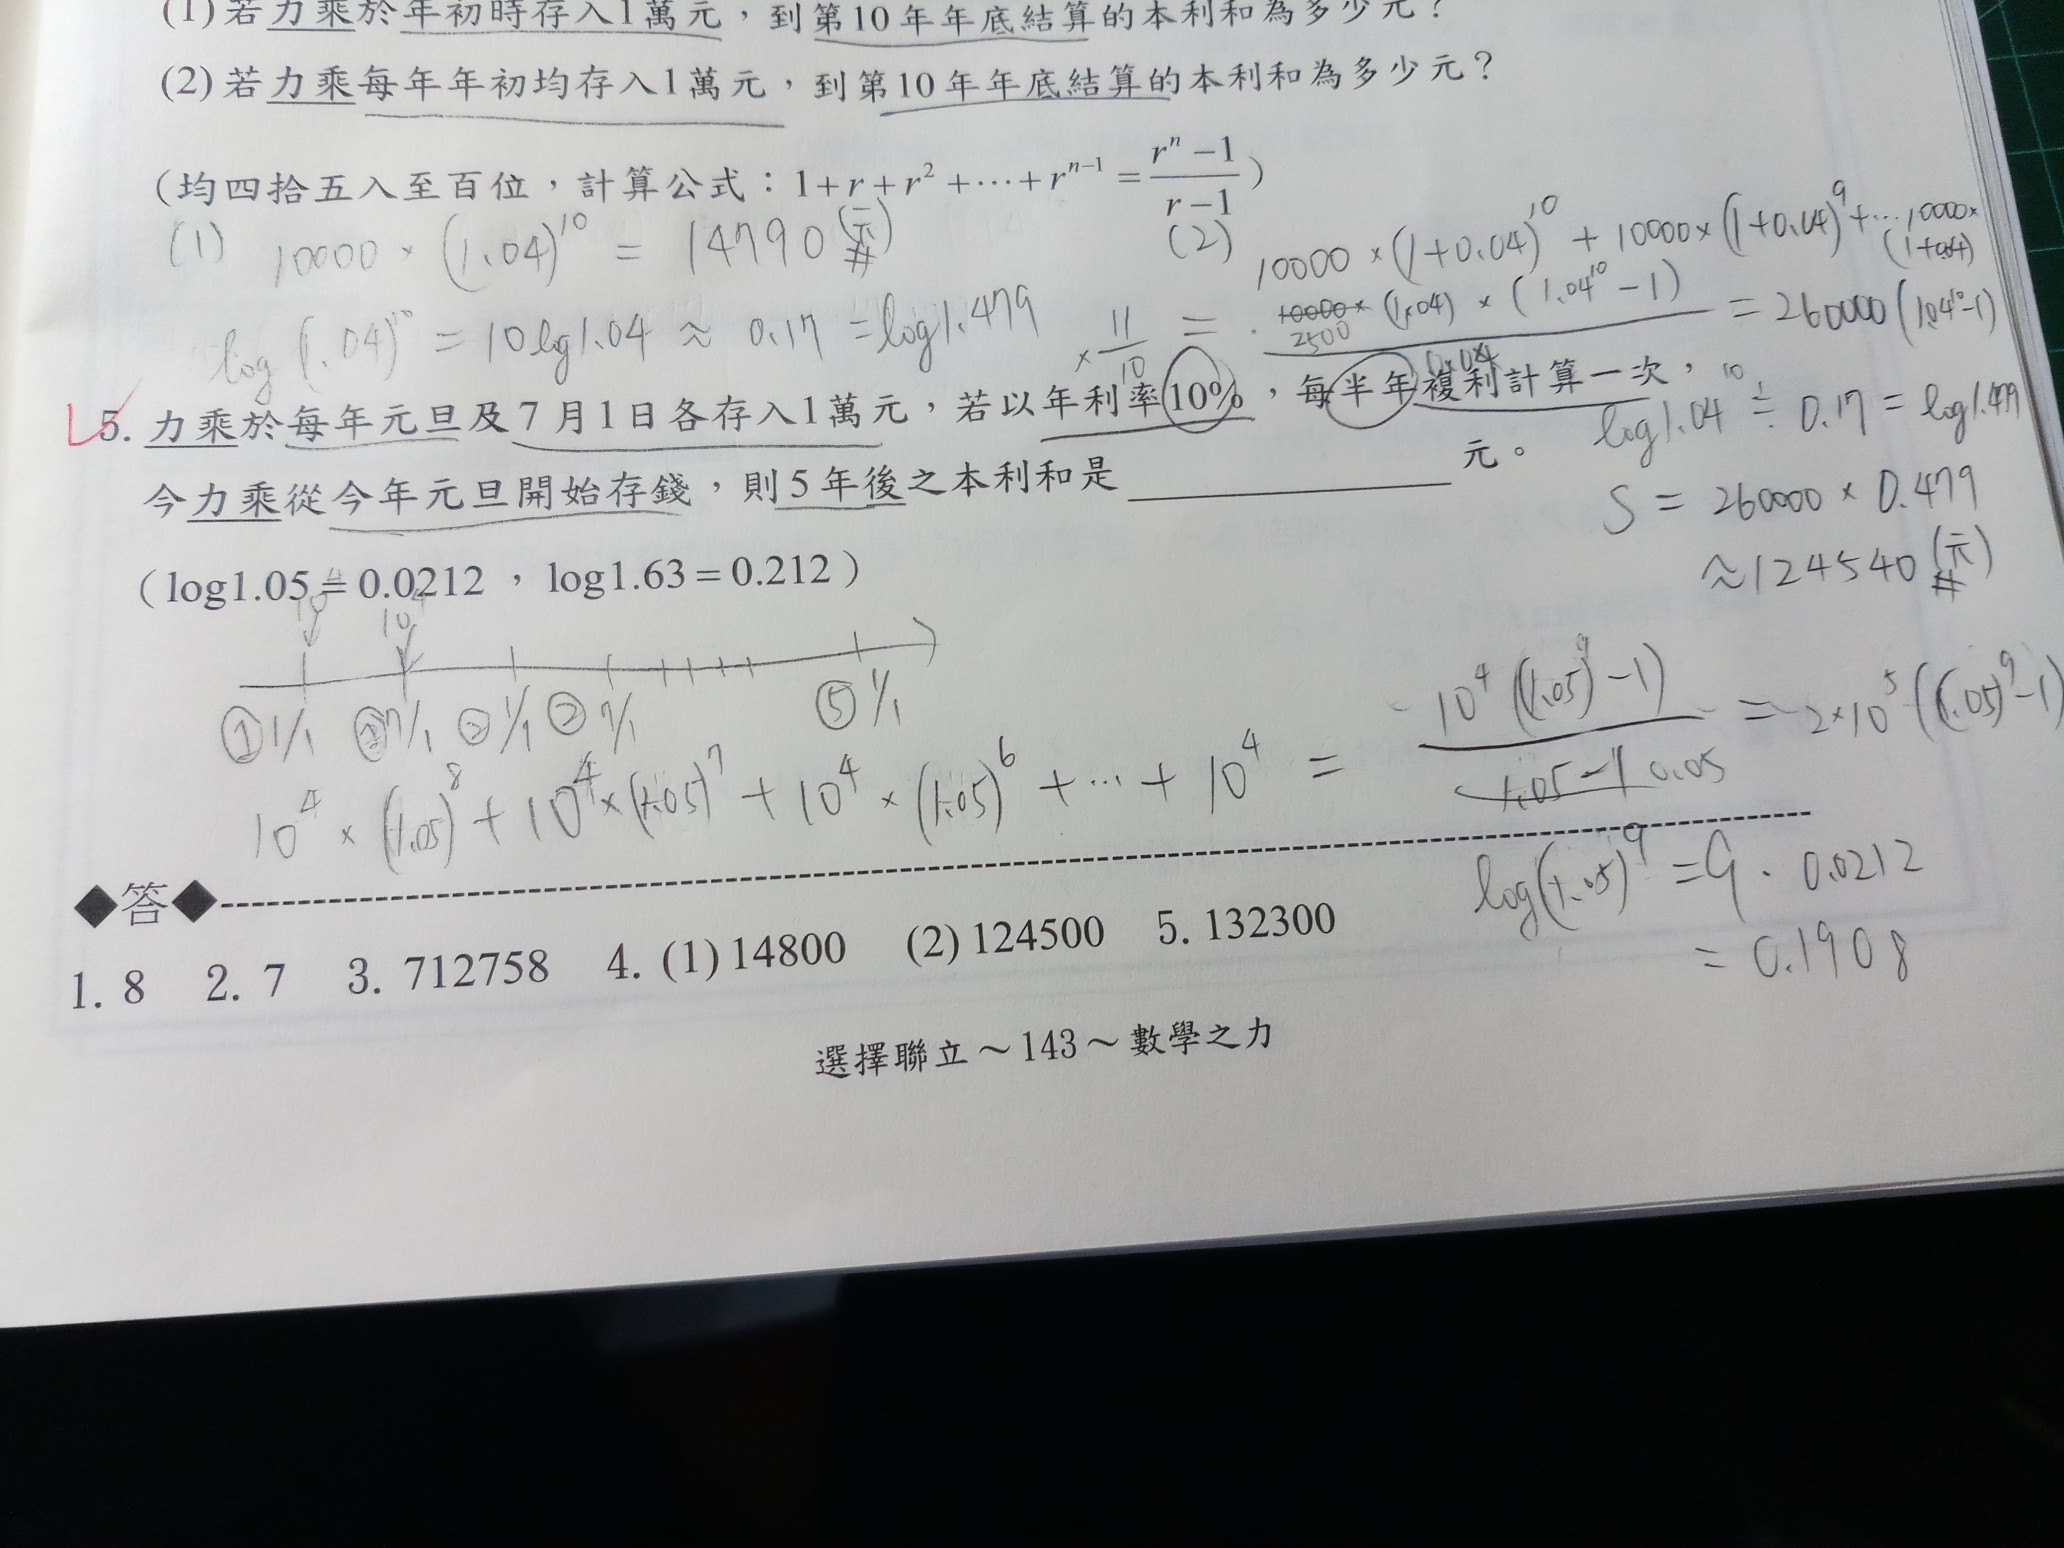 (1)若力乘於年初時存入1萬元，到第10年年底結算的本利和為多少元？
(2)若力乘每年年初均存入1萬元，到第10年年底結算的本利和為多少元？
(均四拾五入至百位，計算公式：1+r+r²+⋯+rⁿ⁻¹=(rⁿ−1)/(r−1))
(1) 10000×(1.04)¹⁰ = 14790(元)#
log(1.04)¹⁰ = 10log1.04 ≈ 0.17 = log1.479
×11/10
(2) 10000×(1+0.04)¹⁰ + 10000×(1+0.04)⁹+⋯10000×(1+0.04)
= 2500 (1.04)×(1.04¹⁰−1) = 260000(1.04¹⁰−1)
0.04
log1.04¹⁰ ≒ 0.17 = log1.479
S = 260000×0.479
≈124540(元)#
5. 力乘於每年元旦及7月1日各存入1萬元，若以年利率10%，每半年複利計算一次，
今力乘從今年元旦開始存錢，則5年後之本利和是＿＿＿＿元。
(log1.05≒0.0212，log1.63=0.212)
10⁴ 10⁴
①1/1 ①7/1 ②1/1 ②7/1 ⑤1/1
10⁴×(1.05)⁸+10⁴×(1.05)⁷+10⁴×(1.05)⁶+⋯+10⁴ = 10⁴((1.05)⁹−1)/0.05 = 2×10⁵((1.05)⁹−1)
log(1.05)⁹ = 9·0.0212
= 0.1908
◆答◆
1. 8 2. 7 3. 712758 4. (1)14800 (2)124500 5. 132300
選擇聯立～143～數學之力